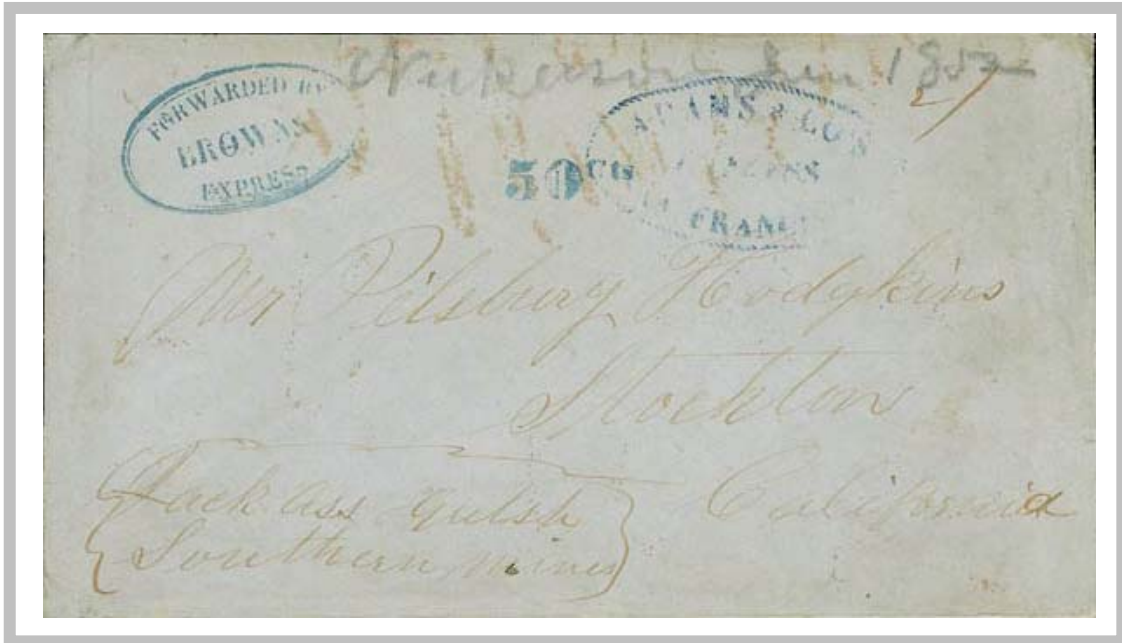 FORWARDED BY
BROWNS
EXPRESS
ADAMS & CO'S
EXPRESS
FRANC
50 Cts
27
Mr Pilsbury Hodgkins
Stockton
California
Jack ass gulsh
Southern mines